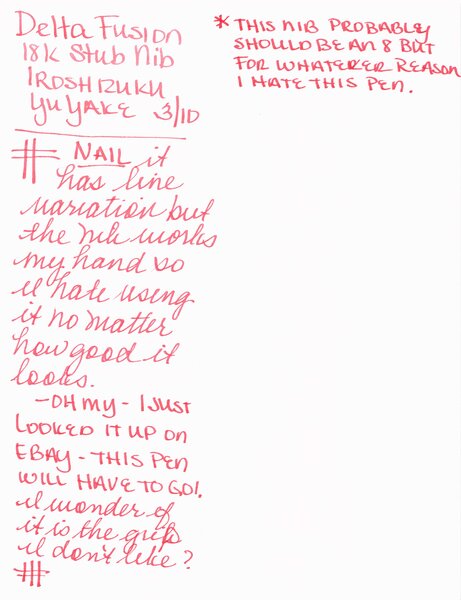 Delta Fusion
18K Stub Nib
IROSHIZUKU
YU YAKE 3/10
# NAIL it
has line
variation but
the nib works
my hand so
I hate using
it no matter
how good it
looks.
-OH MY - I JUST
LOOKED IT UP ON
EBAY - THIS PEN
WILL HAVE TO GO!.
I wonder if
it is the grip
I don't like?
#
* THIS NIB PROBABLY
SHOULD BE AN 8 BUT
FOR WHATERER REASON
I HATE THIS PEN.